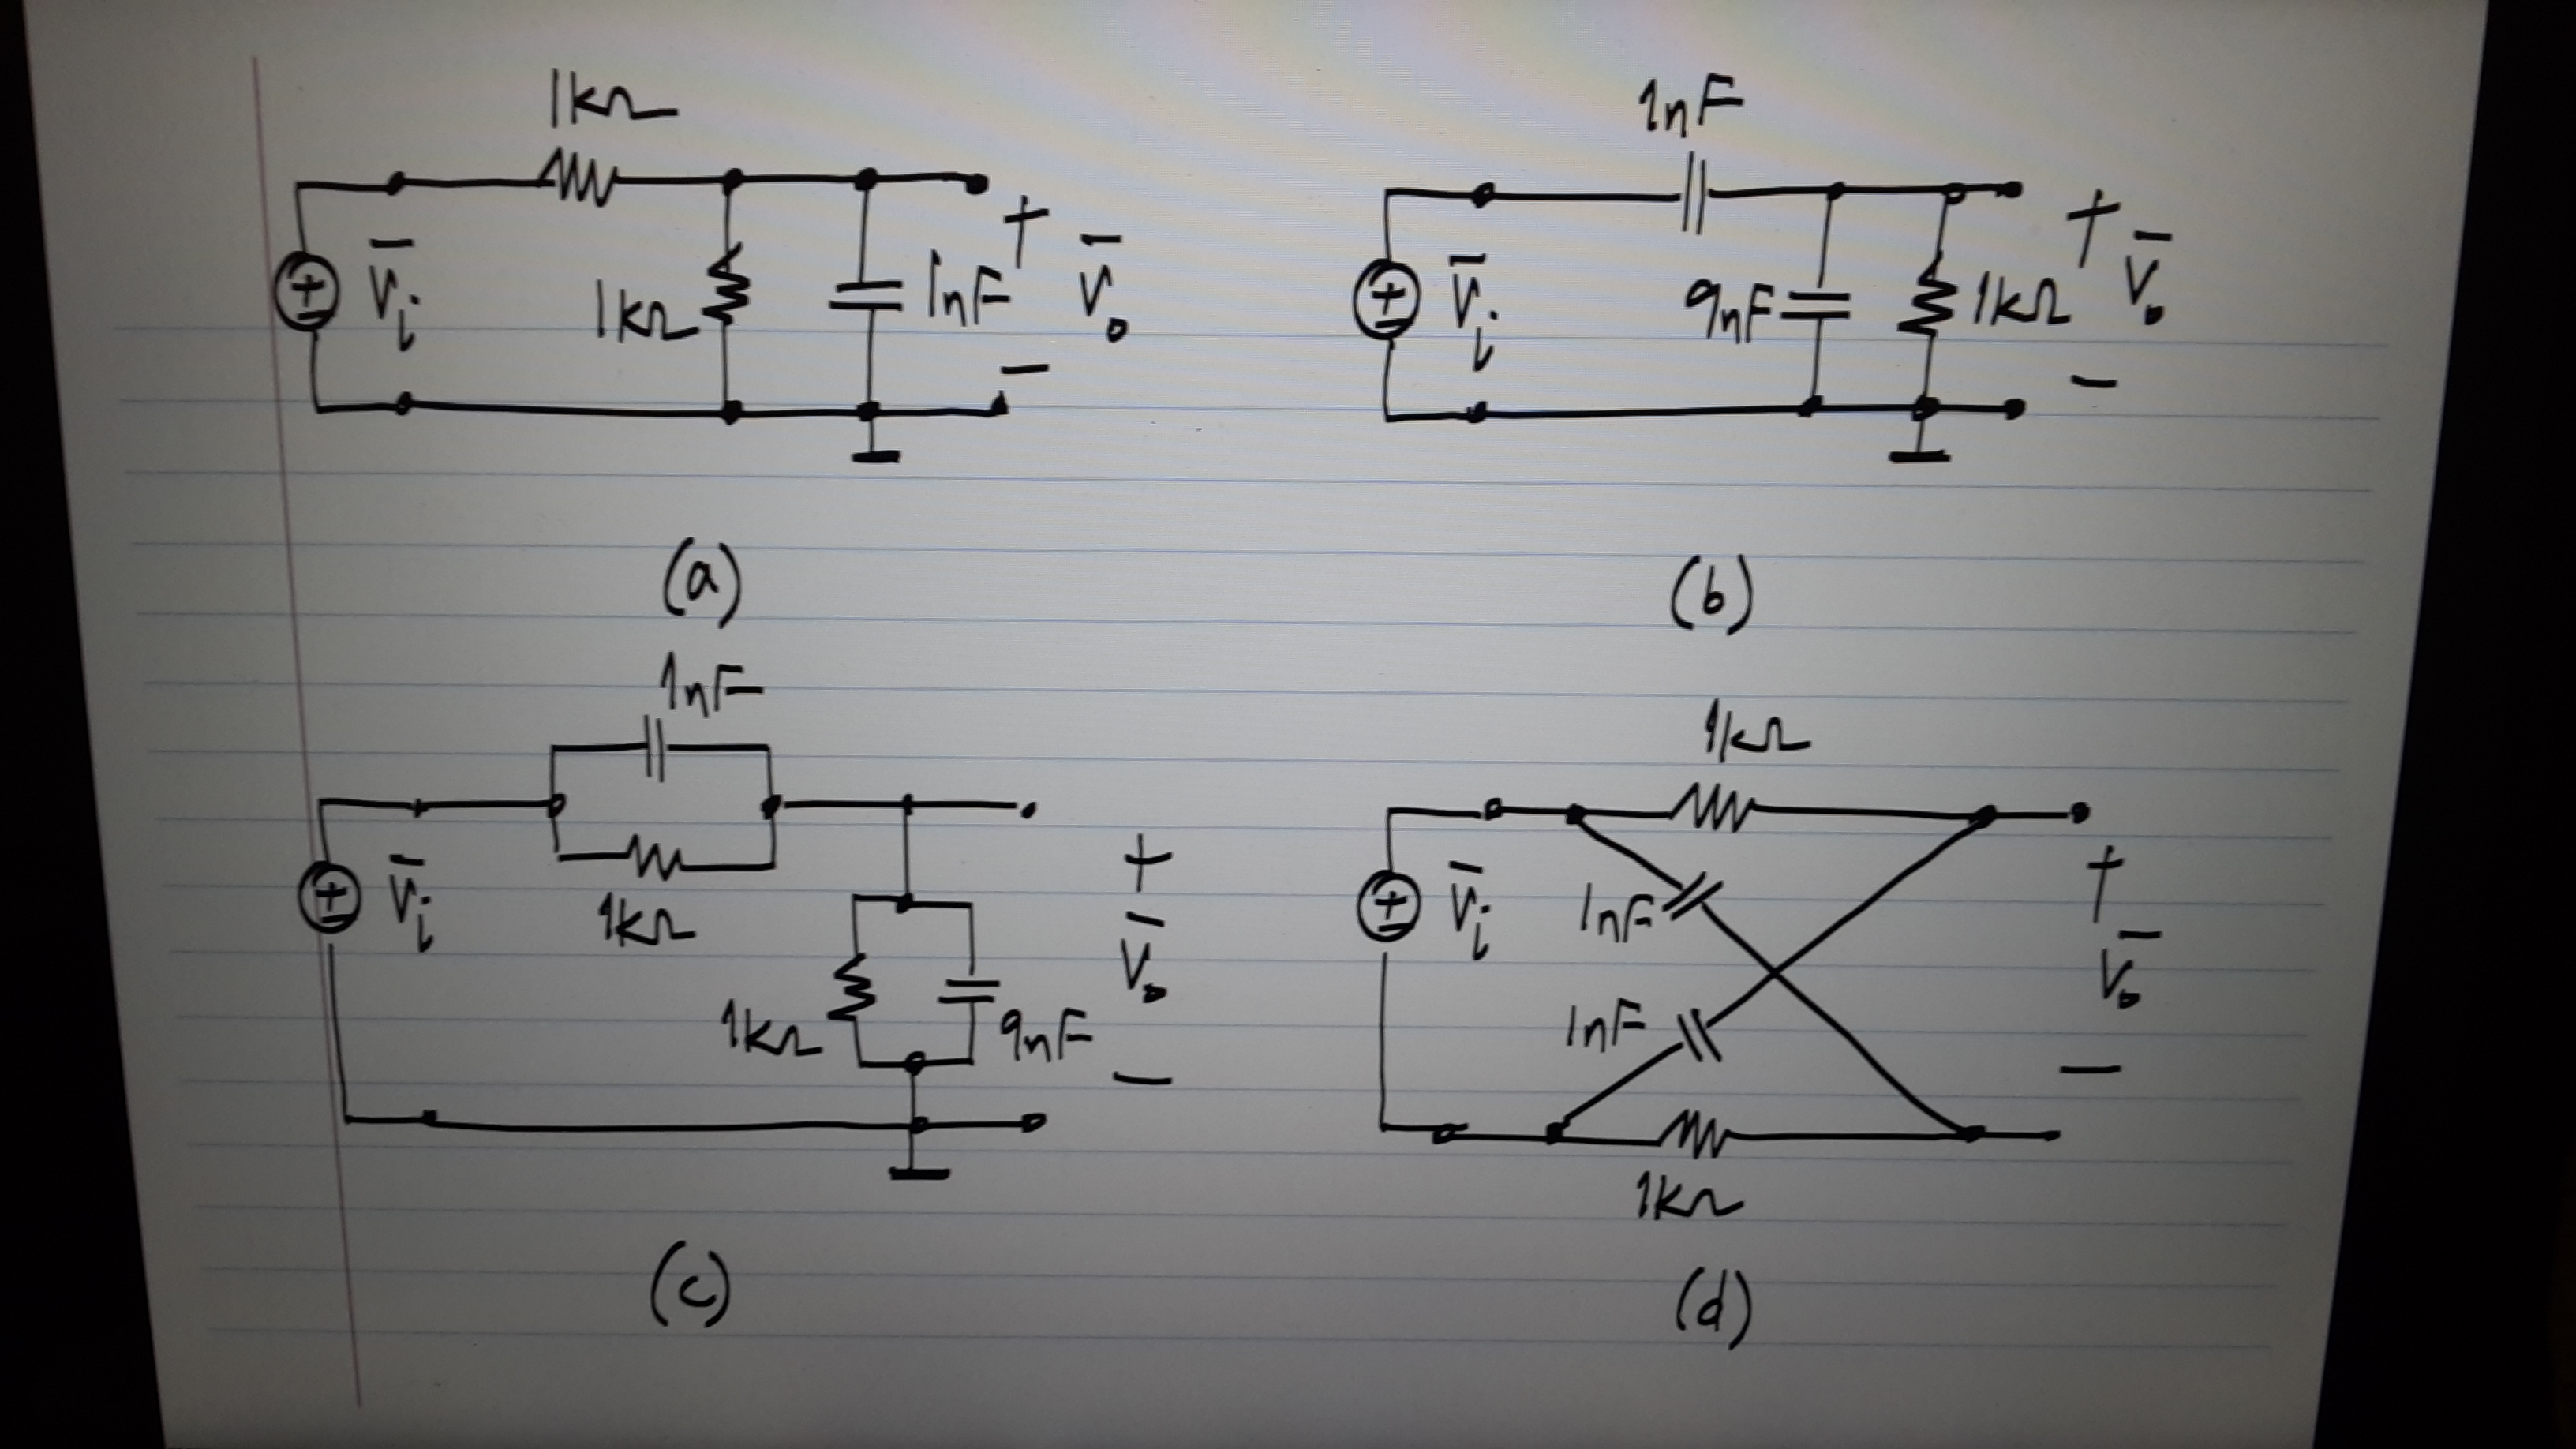 1kΩ
+
V̄i
1kΩ
1nF
+
V̄o
−
(a)
1nF
+
V̄i
9nF
1kΩ
+
V̄o
−
(b)
1nF
1kΩ
+
V̄i
1kΩ
9nF
+
V̄o
−
(c)
1kΩ
+
V̄i
1nF
1nF
1kΩ
+
V̄o
−
(d)